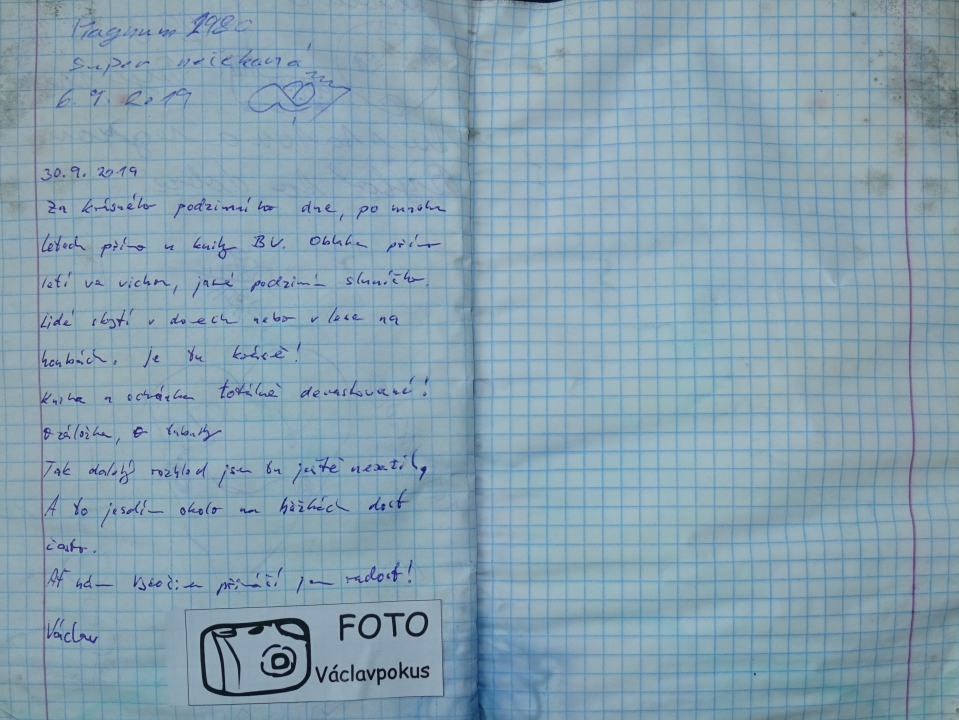 Magnum 1980
super
6. 9. 2019
30.9. 2019
Za krásného podzimního dne, po mnoha
letech přímo u knihy BV. Obloha přímo
letí ve vichru, jasné podzimní sluníčko.
Lidé skrytí v domech nebo v lese na
houbách, je tu krásně!
Kniha a schránka totálně devastované!
0 záložka, 0 tabulky
Tak daleký rozhled jsem tu ještě nezažil,
A to jezdím okolo na běžkách dost
často.
Ať nám Vysočina přináší jen radost!
Václav
FOTO
Václavpokus